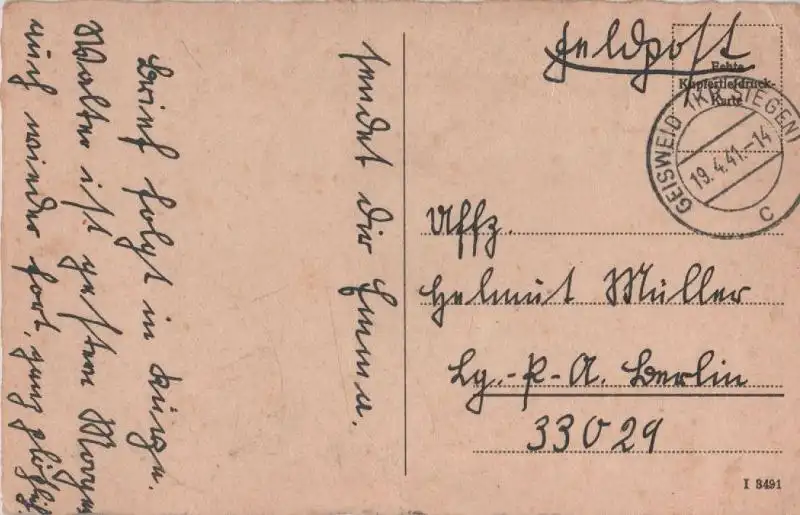 sendet dir Emma.
Brief folgt in Kürze.
Walter ist gestern Morgen
auch wieder fort, ganz plötzlich.
Feldpost
Echte
Kupfertiefdruck-
Karte
GEISWEID (KR. SIEGEN)
19.4.41.-14
c
Uffz.
Helmut Müller
Lg.-P.-A. Berlin
33029
I 8491